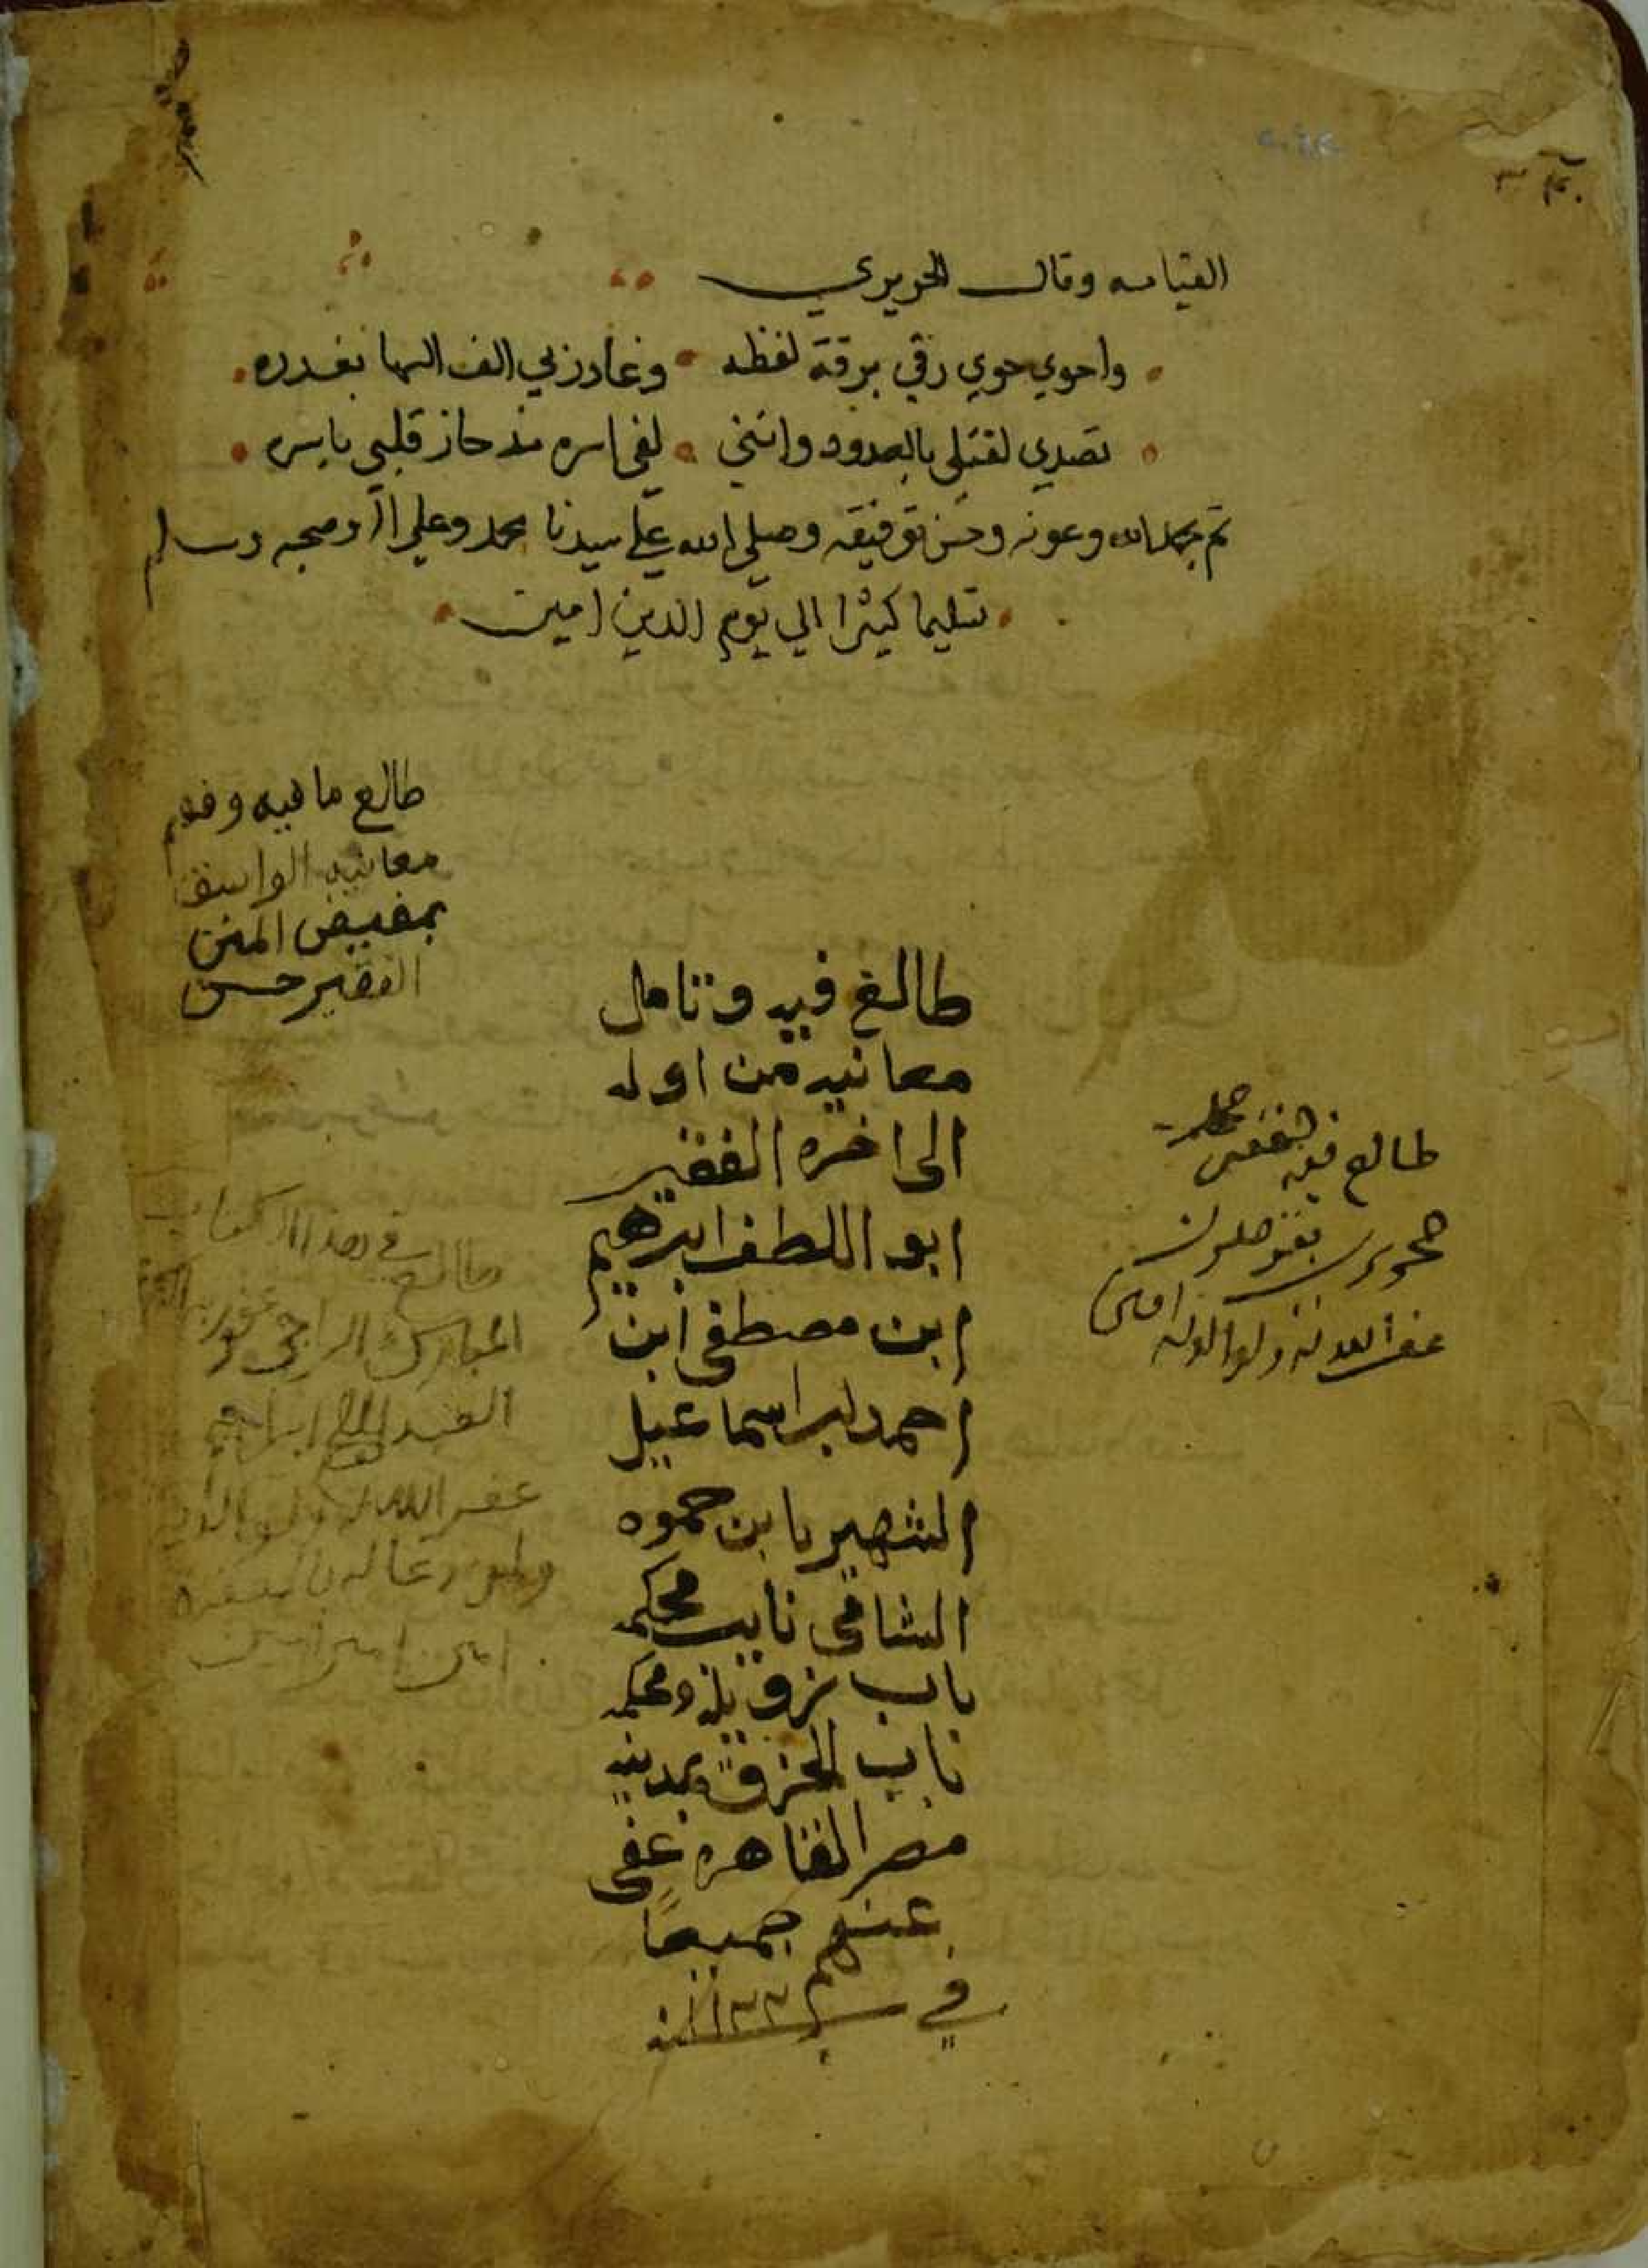 القيامه وقال الحريري
واحوي حوي رقي برقة لفظه وغادرني الف السها بغدره
تصدي لقتلي بالصدود وانني لفي اسره مذ حاز قلبي باسره
تم بحمد الله وعونه وحسن توفيقه وصلي الله علي سيدنا محمد وعلي اله وصحبه وسلم
تسليما كثيرا الي يوم الدين امين
طالع ما فيه وفهم
معانيه الواثق
بمفيض المنن
الفقير حسن
طالع فيه وتامل
معانيه من اوله
الى اخره الفقير
ابو اللطف ابرهيم
ابن مصطفى ابن
احمد ابن اسماعيل
الشهير بابن حموه
الشافعى نايب محكمة
باب زويلة ومحكمة
باب الخرق بمدينه
مصر القاهره عفى
عنهم جميعا
في سنه ١١٣٣
طالع فيه
غفر الله له ولوالديه امين
طالع في هذا الكتاب
المبارك الراجى عفو ربه
العبد ابراهيم
غفر الله له ولوالديه
ولمن دعا له بالمغفره
امين امين امين